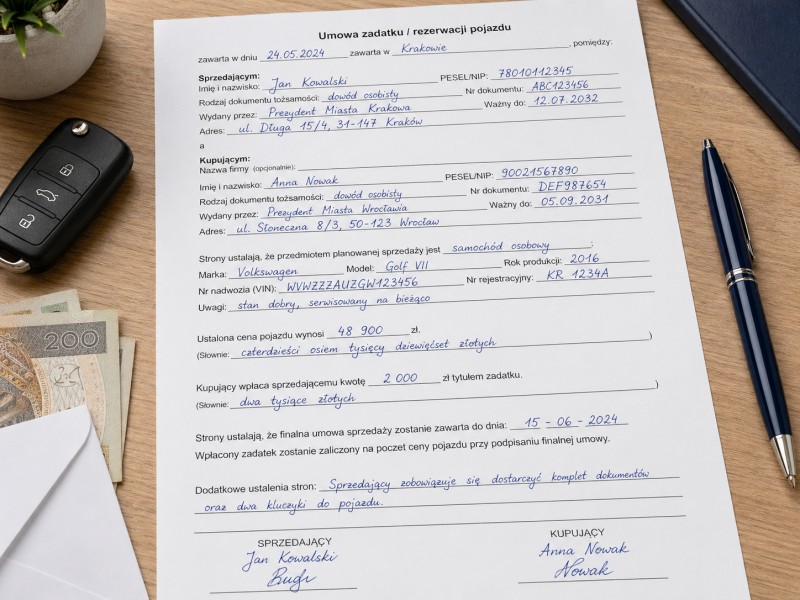 Umowa zadatku / rezerwacji pojazdu
zawarta w dniu 24.05.2024 zawarta w Krakowie, pomiędzy:
Sprzedającym:
Imię i nazwisko: Jan Kowalski PESEL/NIP: 78010112345
Rodzaj dokumentu tożsamości: dowód osobisty Nr dokumentu: ABC123456
Wydany przez: Prezydent Miasta Krakowa Ważny do: 12.07.2032
Adres: ul. Długa 15/4, 31-147 Kraków
a
Kupującym:
Nazwa firmy (opcjonalnie):
Imię i nazwisko: Anna Nowak PESEL/NIP: 90021567890
Rodzaj dokumentu tożsamości: dowód osobisty Nr dokumentu: DEF987654
Wydany przez: Prezydent Miasta Wrocławia Ważny do: 05.09.2031
Adres: ul. Słoneczna 8/3, 50-123 Wrocław
Strony ustalają, że przedmiotem planowanej sprzedaży jest samochód osobowy;
Marka: Volkswagen Model: Golf VII Rok produkcji: 2016
Nr nadwozia (VIN): WVWZZZAUZGW123456 Nr rejestracyjny: KR 1234A
Uwagi: stan dobry, serwisowany na bieżąco
Ustalona cena pojazdu wynosi 48 900 zł.
(Słownie: czterdzieści osiem tysięcy dziewięćset złotych)
Kupujący wpłaca sprzedającemu kwotę 2 000 zł tytułem zadatku.
(Słownie: dwa tysiące złotych)
Strony ustalają, że finalna umowa sprzedaży zostanie zawarta do dnia: 15 - 06 - 2024
Wpłacony zadatek zostanie zaliczony na poczet ceny pojazdu przy podpisaniu finalnej umowy.
Dodatkowe ustalenia stron: Sprzedający zobowiązuje się dostarczyć komplet dokumentów
oraz dwa kluczyki do pojazdu.
SPRZEDAJĄCY KUPUJĄCY
Jan Kowalski Anna Nowak
Nowak
200